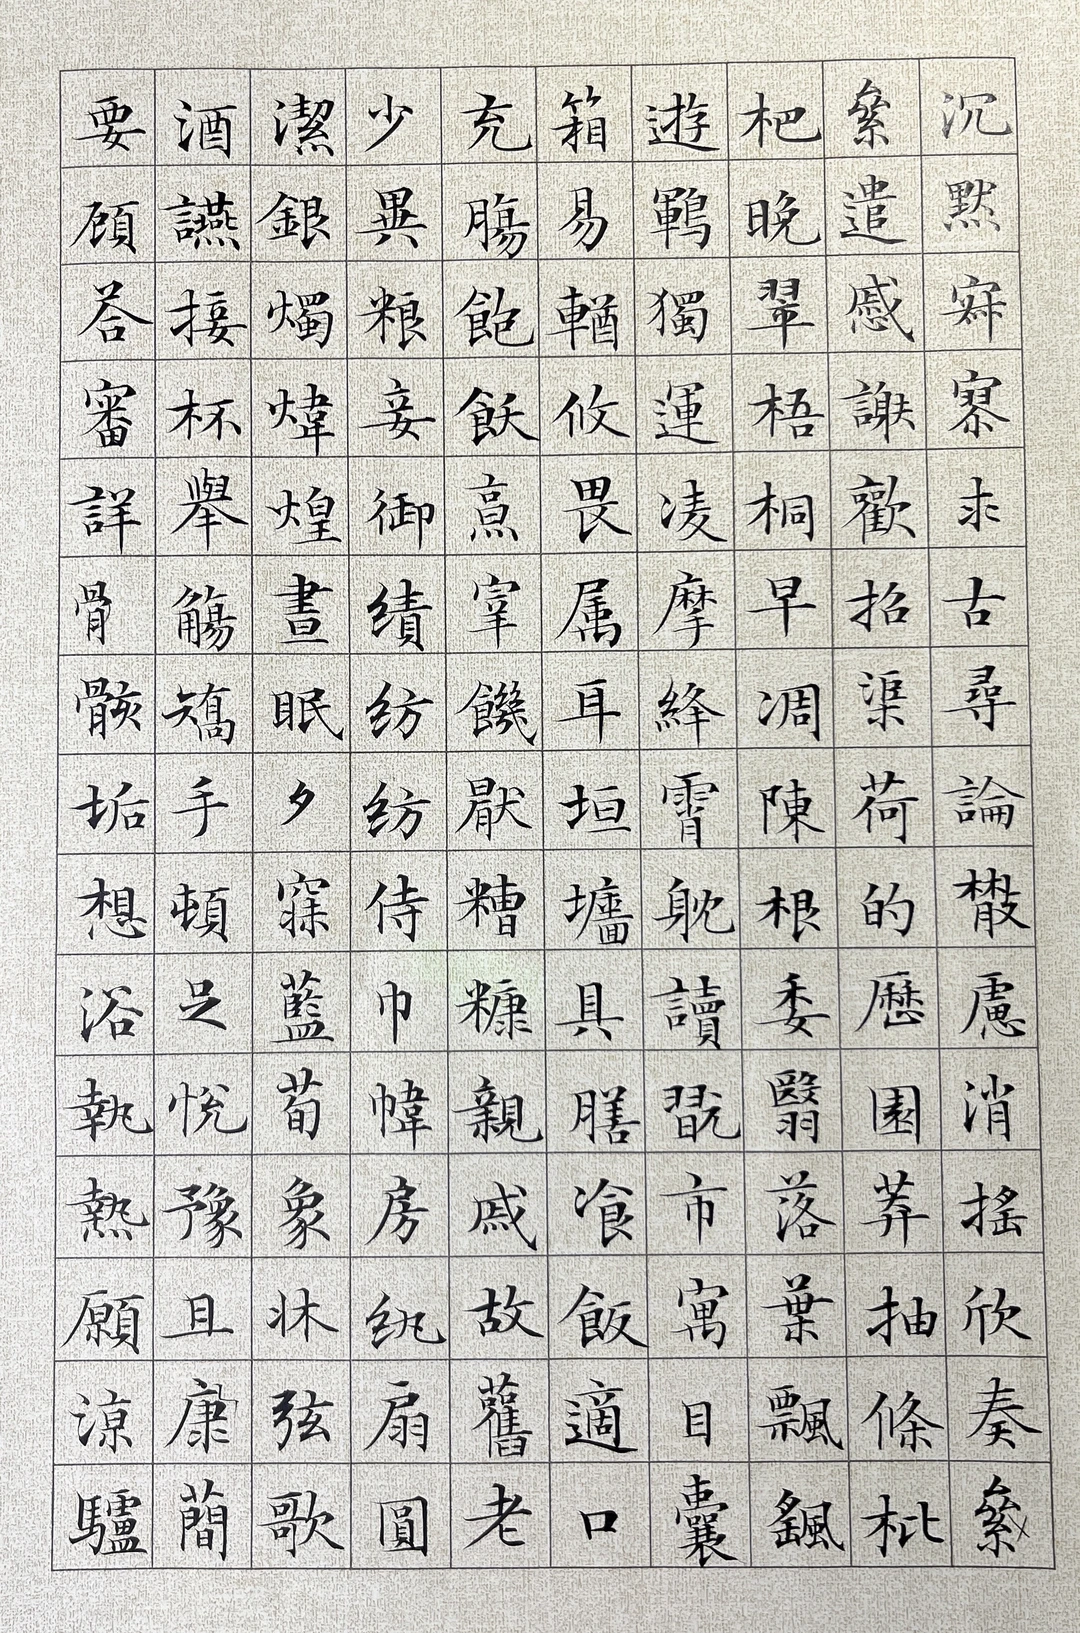 沉默寂寥求古尋論散慮消搖欣奏絫
絫遣慼謝歡招渠荷的歷園莽抽條枇
杷晚翠梧桐早凋陳根委翳落葉飄颻
遊鵾獨運凌摩絳霄躭讀翫市寓目囊
箱易輶攸畏属耳垣墻具膳飡飯適口
充膓飽飫烹宰饑厭糟糠親戚故舊老
少異粮妾御績紡紡侍巾幃房紈扇圓
潔銀燭煒煌晝眠夕寐藍荀象牀弦歌
酒讌接杯舉觴矯手頓足悅豫且康蕳
要顧荅審詳骨骸垢想浴執熱願涼驢